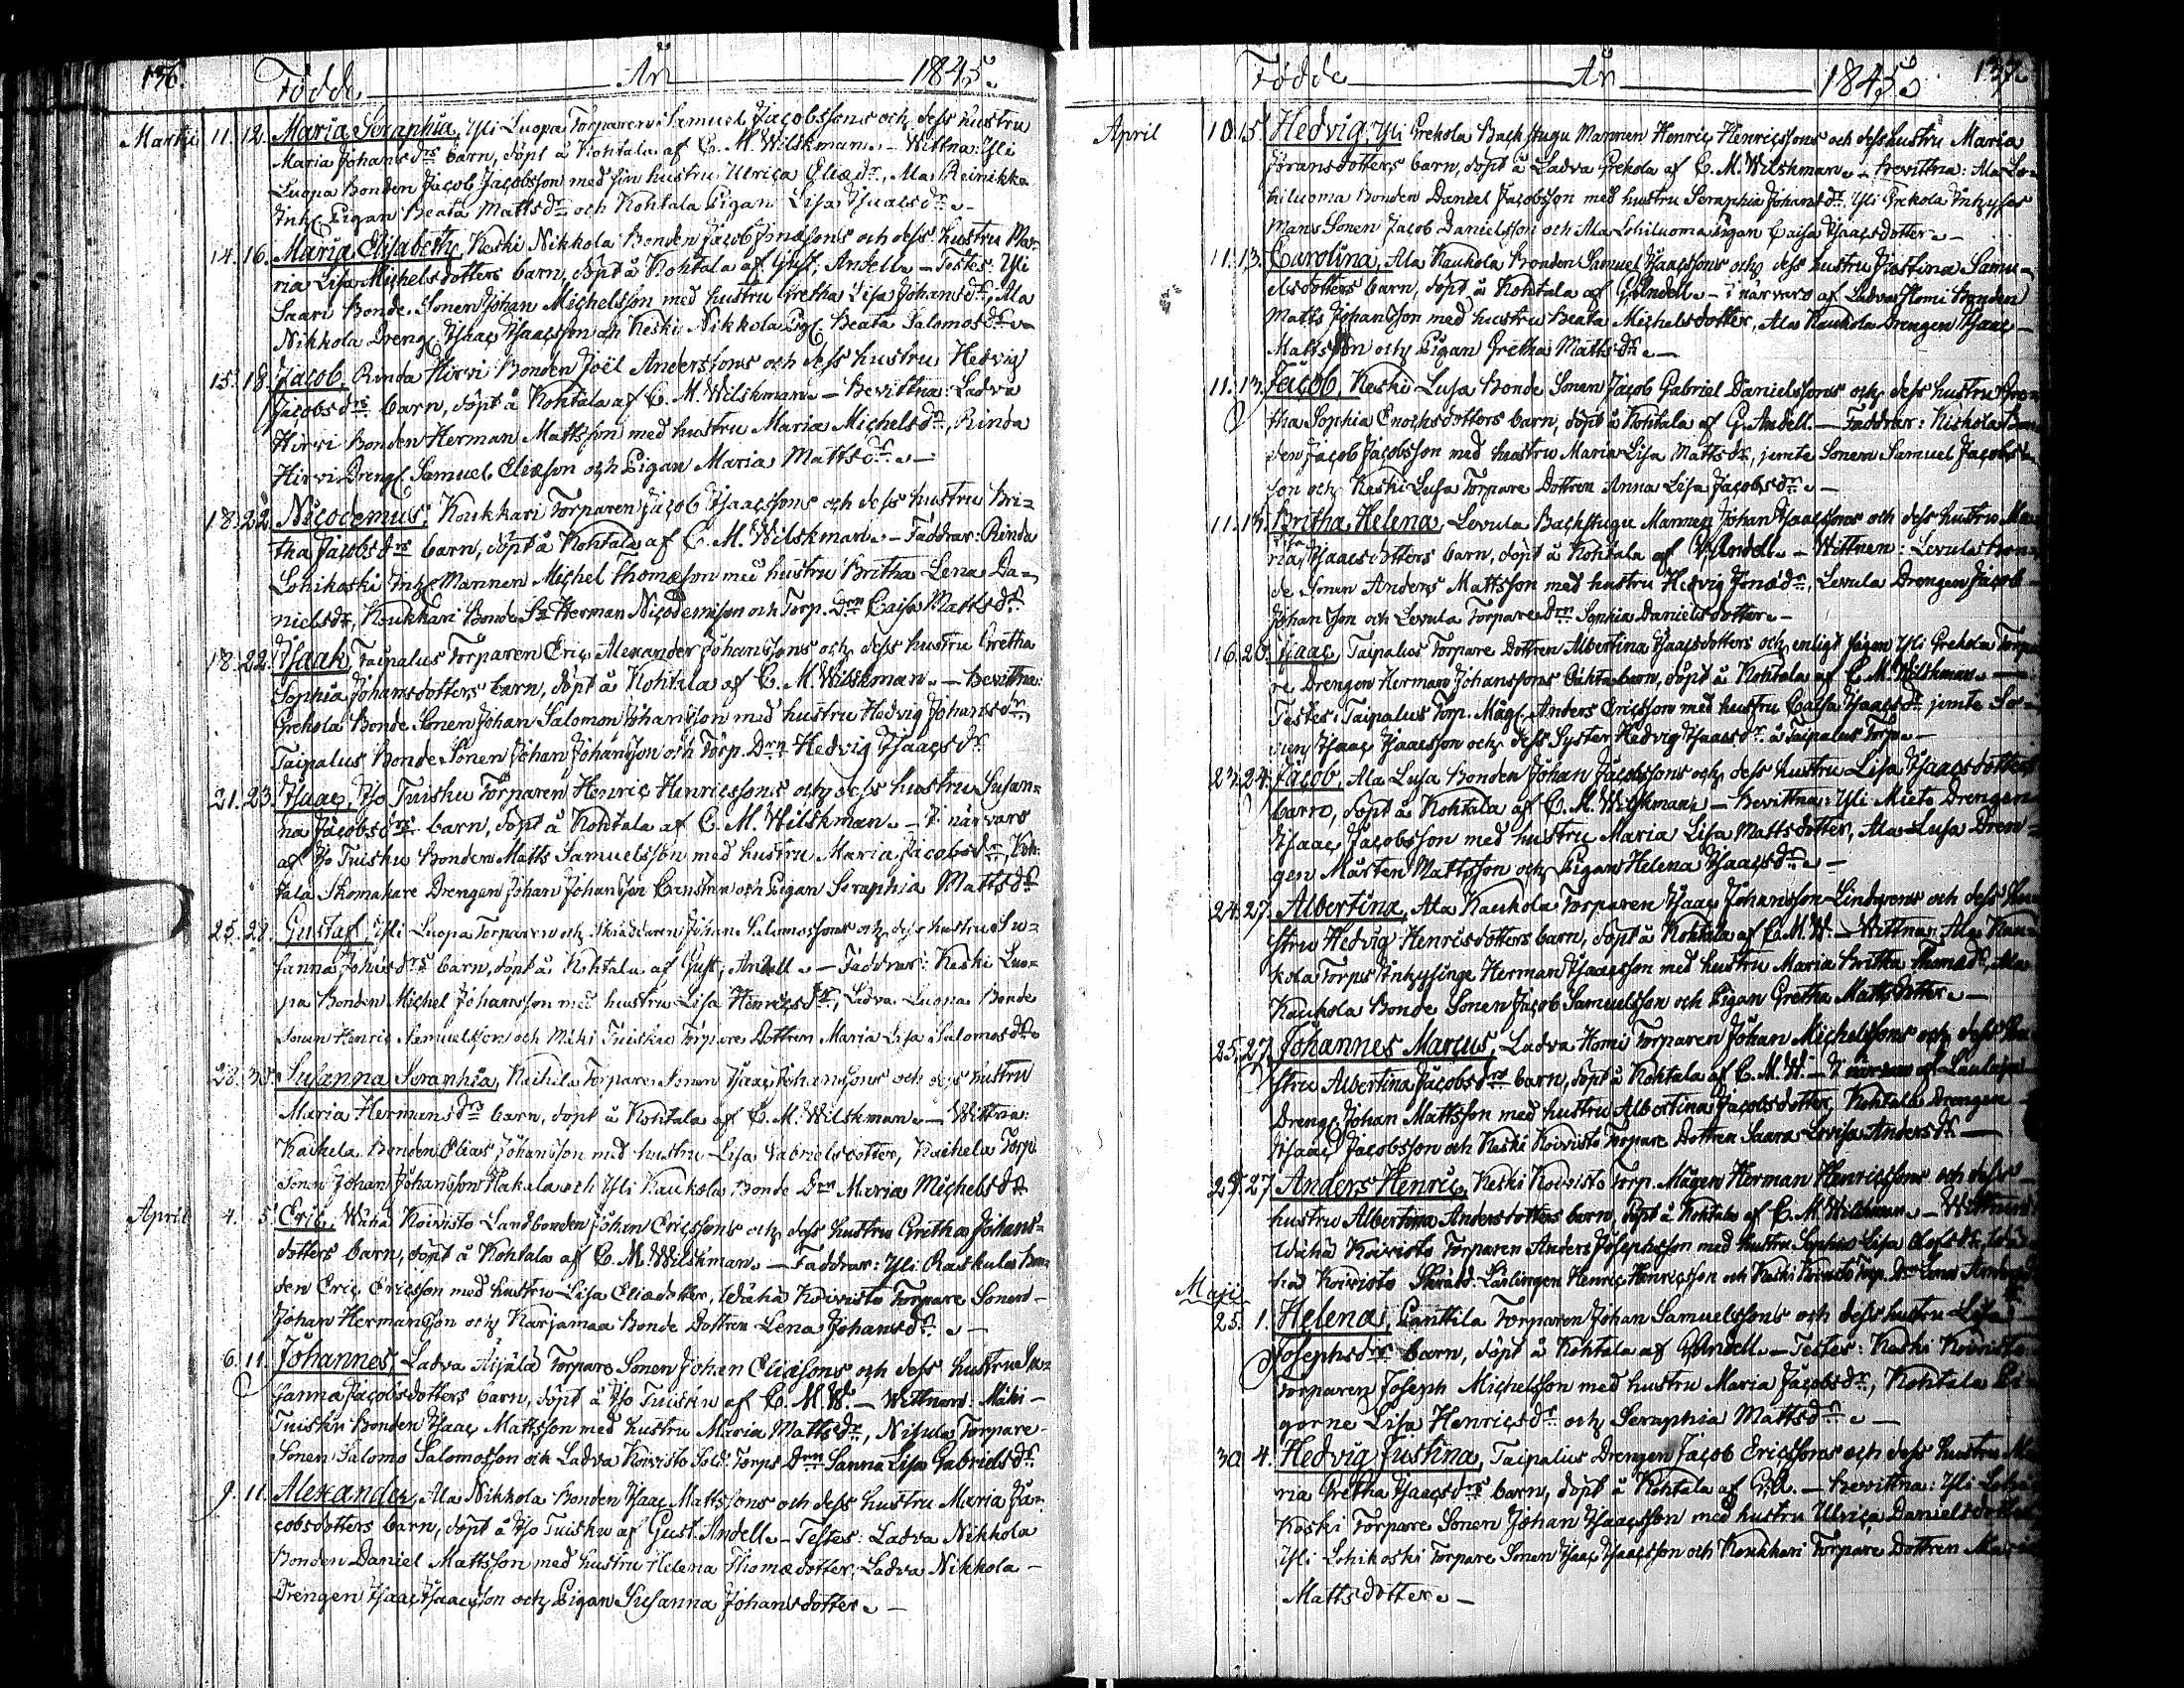 136. Födde År 1845.
Martii 11. 12. Maria Seraphia, Yli Luopa Torparen Samuel Jacobssons och dess hustru
Maria Johansdrs barn, döpt å Kohtala af C. M. Wilskman. – Wittna: Yli
Luopa Bonden Jacob Jacobsson med sin hustru Ulrica Eliædr, Ala Reinikka
Inh. Pigan Beata Mattsdr och Kohtala Pigan Lisa Isaacsdr. –
14. 16. Maria Elisabeth, Keski Nikkola Bonden Jacob Jonæsons och dess hustru Ma-
ria Lisa Michelsdotters barn, döpt å Kohtala af Gust. Andell. – Testes: Yli
Saari Bonde Sonen Johan Michelsson med hustru Gretha Lisa Johansdr, Ala
Nikkola Dreng. Isaac Isaacsson och Keski Nikkola Pig. Beata Salomosdr. –
15. 18. Jacob, Rinda Hirvi Bonden Joël Anderssons och dess hustru Hedvig
Jacobsdrs barn, döpt å Kohtala af C. M. Wilskman. – Bevittna: Ladva
Hirvi Bonden Herman Mattsson med hustru Maria Michelsdr, Rinda
Hirvi Dreng. Samuel Eliæson och Pigan Maria Mattsdr. –
18. 22. Nicodemus, Koukkari Torparen Jacob Isaacssons och dess hustru Bri-
tha Jacobsdrs barn, döpt å Kohtala af C. M. Wilskman. – Faddrar: Rinda
Lohikoski Inh. Mannen Michel Thomæson med hustru Britha Lena Da-
nielsdr, Koukkari Bonde Sn Herman Nicodemison och Torp. Drn Caisa Mattsdr
18. 22. Isaak, Taipalus Torparen Eric Alexander Johanssons och dess hustru Gretha
Sophia Johansdotters barn, döpt å Kohtala af C. M. Wilskman. – Bevittna:
Grekola Bonde Sonen Johan Salomon Johansson med hustru Hedvig Johansdr,
Taipalus Bonde Sonen Johan Johansson och Torp. Drn Hedvig Isaacsdr
21. 23. Isaac, Iso Tuisku Torparen Henric Henricssons och dess hustru Susan-
na Jacobsdrs barn, döpt å Kohtala af C. M. Wilskman. – I närvaro
af Iso Tuisku Bonden Matts Samuelsson med hustru Maria Jacobsdr, Koh-
tala Skomakare Drengen Johan Johansson och Pigan Seraphia Mattsdr
25. 28. Gustaf, Yli Luopa Torparen och Skräddaren Johan Salomossons och dess hustru Su-
sanna Johansdrs barn, döpt å Kohtala af Gust. Andell. – Faddrar: Keski Luo-
pa Bonden Michel Johansson med hustru Lisa Henricsdr, Ladva Luopa Bonde
Sonen Henric Samuelsson och Mäki Tuisku Torpare Dottren Maria Lisa Salomosdr.
28. 30. Susanna Seraphia, Kaihela Torpare Sonen Isaac Johanssons och dess hustru
Maria Hermansdrs barn, döpt å Kohtala af C. M. Wilskman. – Wittna:
Kaihela Bonden Elias Johansson med hustru Lisa Gabrielsdotter, Kaihela Torp.
Sonen Johan Johansson Hakala och Yli Kaukola Bonde Drn Maria Michelsdr
April 4. 5. Eric, Wähä Koivisto Landbonden Johan Ericssons och dess hustru Gretha Johans-
dotters barn, döpt å Kohtala af C. M. Wilskman. – Faddrar: Yli Raskula Bon-
den Eric Ericsson med hustru Lisa Eliædotter, Wähä Koivisto Torpare Sonen –
Johan Hermansson och Karjamaa Bonde Dottren Lena Johansdr. –
6. 11. Johannes, Ladva Äijälä Torpare Sonen Johan Eliæsons och dess hustru Su-
sanna Jacobsdotters barn, döpt å Iso Tuisku af C. M. W. – Wittnen: Mäki –
Tuisku Bonden Isaac Mattsson med hustru Maria Mattsdr, Nisula Torpare
Sonen Salomo Salomosson och Ladva Koivisto Sold. Torps Drn Sanna Lisa Gabrielsdr.
9. 11. Alexander, Ala Nikkola Bonden Isaac Mattssons och dess hustru Maria Ja-
cobsdotters barn, döpt å Iso Tuisku af Gust. Andell. – Testes: Ladva Nikkola
Bonden Daniel Mattsson med hustru Helena Thomædotter, Ladva Nikkola –
Drengen Isaac Isaacsson och Pigan Susanna Johansdotter. –
Födde År 1845. 137.
April 10. 15. Hedvig, Yli Grekola Backstugu Mannen Henric Henricssons och dess hustru Maria
Göransdotters barn, döpt å Ladva Grekola af C. M. Wilskman. – Bevittna: Ala Lo-
hiluoma Bonden Daniel Jacobsson med hustru Seraphia Johansdr, Yli Grekola Inhyses
Mans Sonen Jacob Danielsson och Ala Lohiluoma Pigan Caisa Isaacsdotter. –
11. 13. Carolina, Ala Kaukola Bonden Samuel Isaacssons och dess hustru Justina Samu-
elsdotters barn, döpt å Kohtala af G. Andell. – i närvaro af Ladva Homi Bonden
Matts Johansson med hustru Beata Michelsdotter, Ala Kaukola Drengen Isaac –
Mattsson och Pigan Gretha Mattsdr. –
11. 13. Jacob, Keski Lusa Bonde Sonen Jacob Gabriel Danielssons och dess hustru Gre-
tha Sophia Enochsdotters barn, döpt å Kohtala af G. Andell. – Faddrar: Kiskola Bon-
den Jacob Jacobsson med hustru Maria Lisa Mattsdr, jemte Sonen Samuel Jacobs-
son och Keski Lusa Torpare Dottren Anna Lisa Jacobsdr. –
11. 15. Britha Helena, Levula Backstugu Mannen Johan Isaacssons och dess hustru Ma-
ria Lisa Isaacsdotters barn, döpt å Kohtala af G. Andell. – Wittnen: Levula Bon-
de Sonen Anders Mattsson med hustru Hedvig Jonædr, Levula Drengen Jacob
Johansson och Levula Torpare Drn Sophia Danielsdotter. –
16. 20. Isaac, Taipalus Torpare Dottren Albertina Isaacsdotters och enligt sägen Yli Grekola Torpa-
re Drengen Herman Johanssons Oäkta barn, döpt å Kohtala af C. M. Wilskman. –
Testes: Taipalus Torp. Måg. Anders Ericsson med hustru Caisa Isaacsdr jemte So-
nen Isaac Isaacsson och dess Syster Hedvig Isaacsdr å Taipalus Torp. –
23. 24. Jacob, Ala Lusa Bonden Johan Jacobssons och dess hustru Lisa Isaacsdotters
barn, döpt å Kohtala af C. M. Wilskman. – Bevittna: Yli Mieto Drengen
Isaac Jacobsson med hustru Maria Lisa Mattsdotter, Ala Lusa Dren-
gen Mårten Mattsson och Pigan Helena Isaacsdr. –
24. 27. Albertina, Ala Kaukola Torparen Isaac Johansson Lindgrens och dess Hu-
stru Hedvig Henricsdotters barn, döpt å Kohtala af C. M. W. – Wittna: Ala Kau-
kola Torps Inhysinge Herman Isaacsson med hustru Maria Britha Thomædr, Ala
Kaukola Bonde Sonen Jacob Samuelsson och Pigan Gretha Mattsdotter. –
25. 27. Johannes Marcus, Ladva Homi Torparen Johan Michelssons och dess Hu-
stru Albertina Jacobsdrs barn, döpt å Kohtala af C. M. W. – I närvaro af Laulaja
Dreng. Johan Mattsson med hustru Albertina Jacobsdotter, Kohtala Drengen
Isaac Jacobsson och Keski Koivisto Torpare Dottren Saara Lovisa Andersdr. –
27. Anders Henric, Keski Koivisto Torp. Mågen Herman Henricssons och dess
hustru Albertina Andersdotters barn, döpt å Kohtala af C. M. Wilskman. – Wittnen:
Wähä Koivisto Torparen Anders Josephsson med hustru Sophia Lisa Olofsdr, Wä-
hä Koivisto Skrädd. Lärlingen Henric Henricsson och Keski Koivisto Torp. Drn Lena Anders
dr
Maji 25. 1. Helena, Panttila Torparen Johan Samuelssons och dess hustru Lisa
Josephsdrs barn, döpt å Kohtala af G. Andell. – Testes: Keski Koivisto
Torparen Joseph Michelsson med hustru Maria Jacobsdr, Kohtala Pi-
gorne Lisa Henricsdr och Seraphia Mattsdr. –
30. 4. Hedvig Justina, Taipalus Drengen Jacob Ericssons och dess hustru Ma-
ria Gretha Isaacsdrs barn, döpt å Kohtala af G. A. – Bevittna: Yli Lohi
Koski Torpare Sonen Johan Isaacsson med hustru Ulrica Danielsdotter
Yli Lohikoski Torpare Sonen Isaac Isaacsson och Koukkari Torpare Dottren Maria
Mattsdotter. –